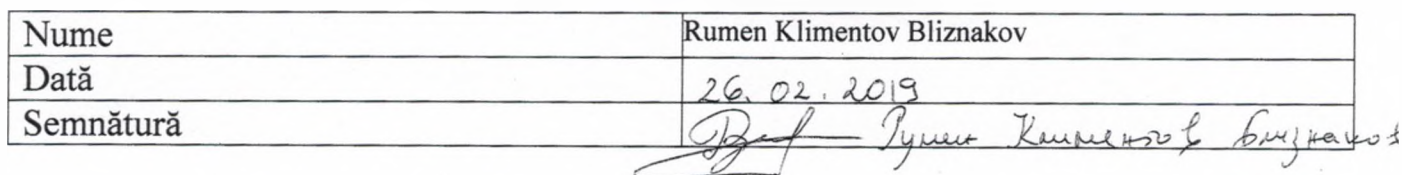 Nume Rumen Klimentov Bliznakov
Dată 26. 02. 2019
Semnătură Румен Климентов Близнаков